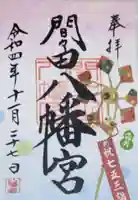 奉拝
祝七五三
間々田八幡宮
令和四年十一月二十七日